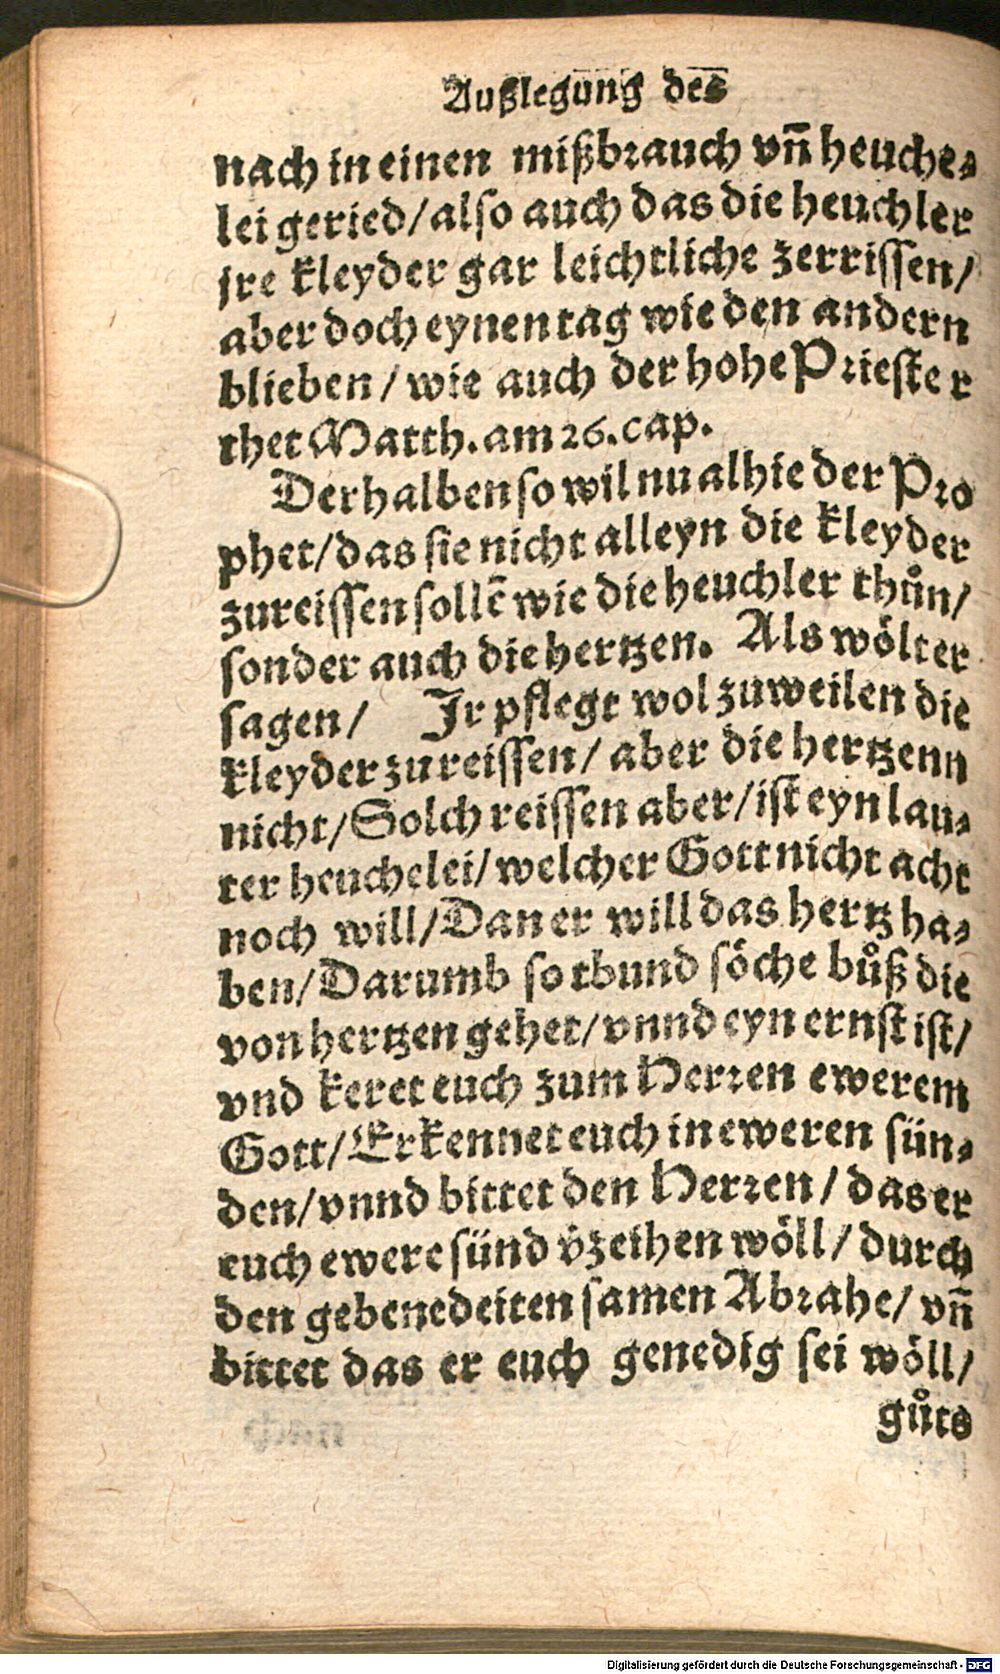 Außlegung des
nach in einen mißbrauch vñ heuche-
lei geried/ also auch das die heuchler
jre kleyder gar leichtliche zerrissen/
aber doch eynen tag wie den andern
blieben/ wie auch der hohe Priester
thet Matth. am 26. cap.
Derhalben so wil nu alhie der Pro
phet/ das sie nicht alleyn die kleyder
zureissen sollẽ wie die heuchler thůn/
sonder auch die hertzen. Als wölt er
sagen/ Jr pflegt wol zuweilen die
kleyder zureissen/ aber die hertzenn
nicht/ Solch reissen aber/ ist eyn lau-
ter heuchelei/ welcher Gott nicht acht
noch will/ Dan er will das hertz ha-
ben/ Darumb so thund söche bůß die
von hertzen gehet/ vnnd eyn ernst ist/
vnd keret euch zum Herren ewerem
Gott/ Erkennet euch in eweren sün-
den/ vnnd bittet den Herren/ das er
euch ewere sünd v̊zeihen wöll/ durch
den gebenedeiten samen Abrahe/ vñ
bittet das er euch genedig sei wöll/
gůts
Digitalisierung gefördert durch die Deutsche Forschungsgemeinschaft - DFG